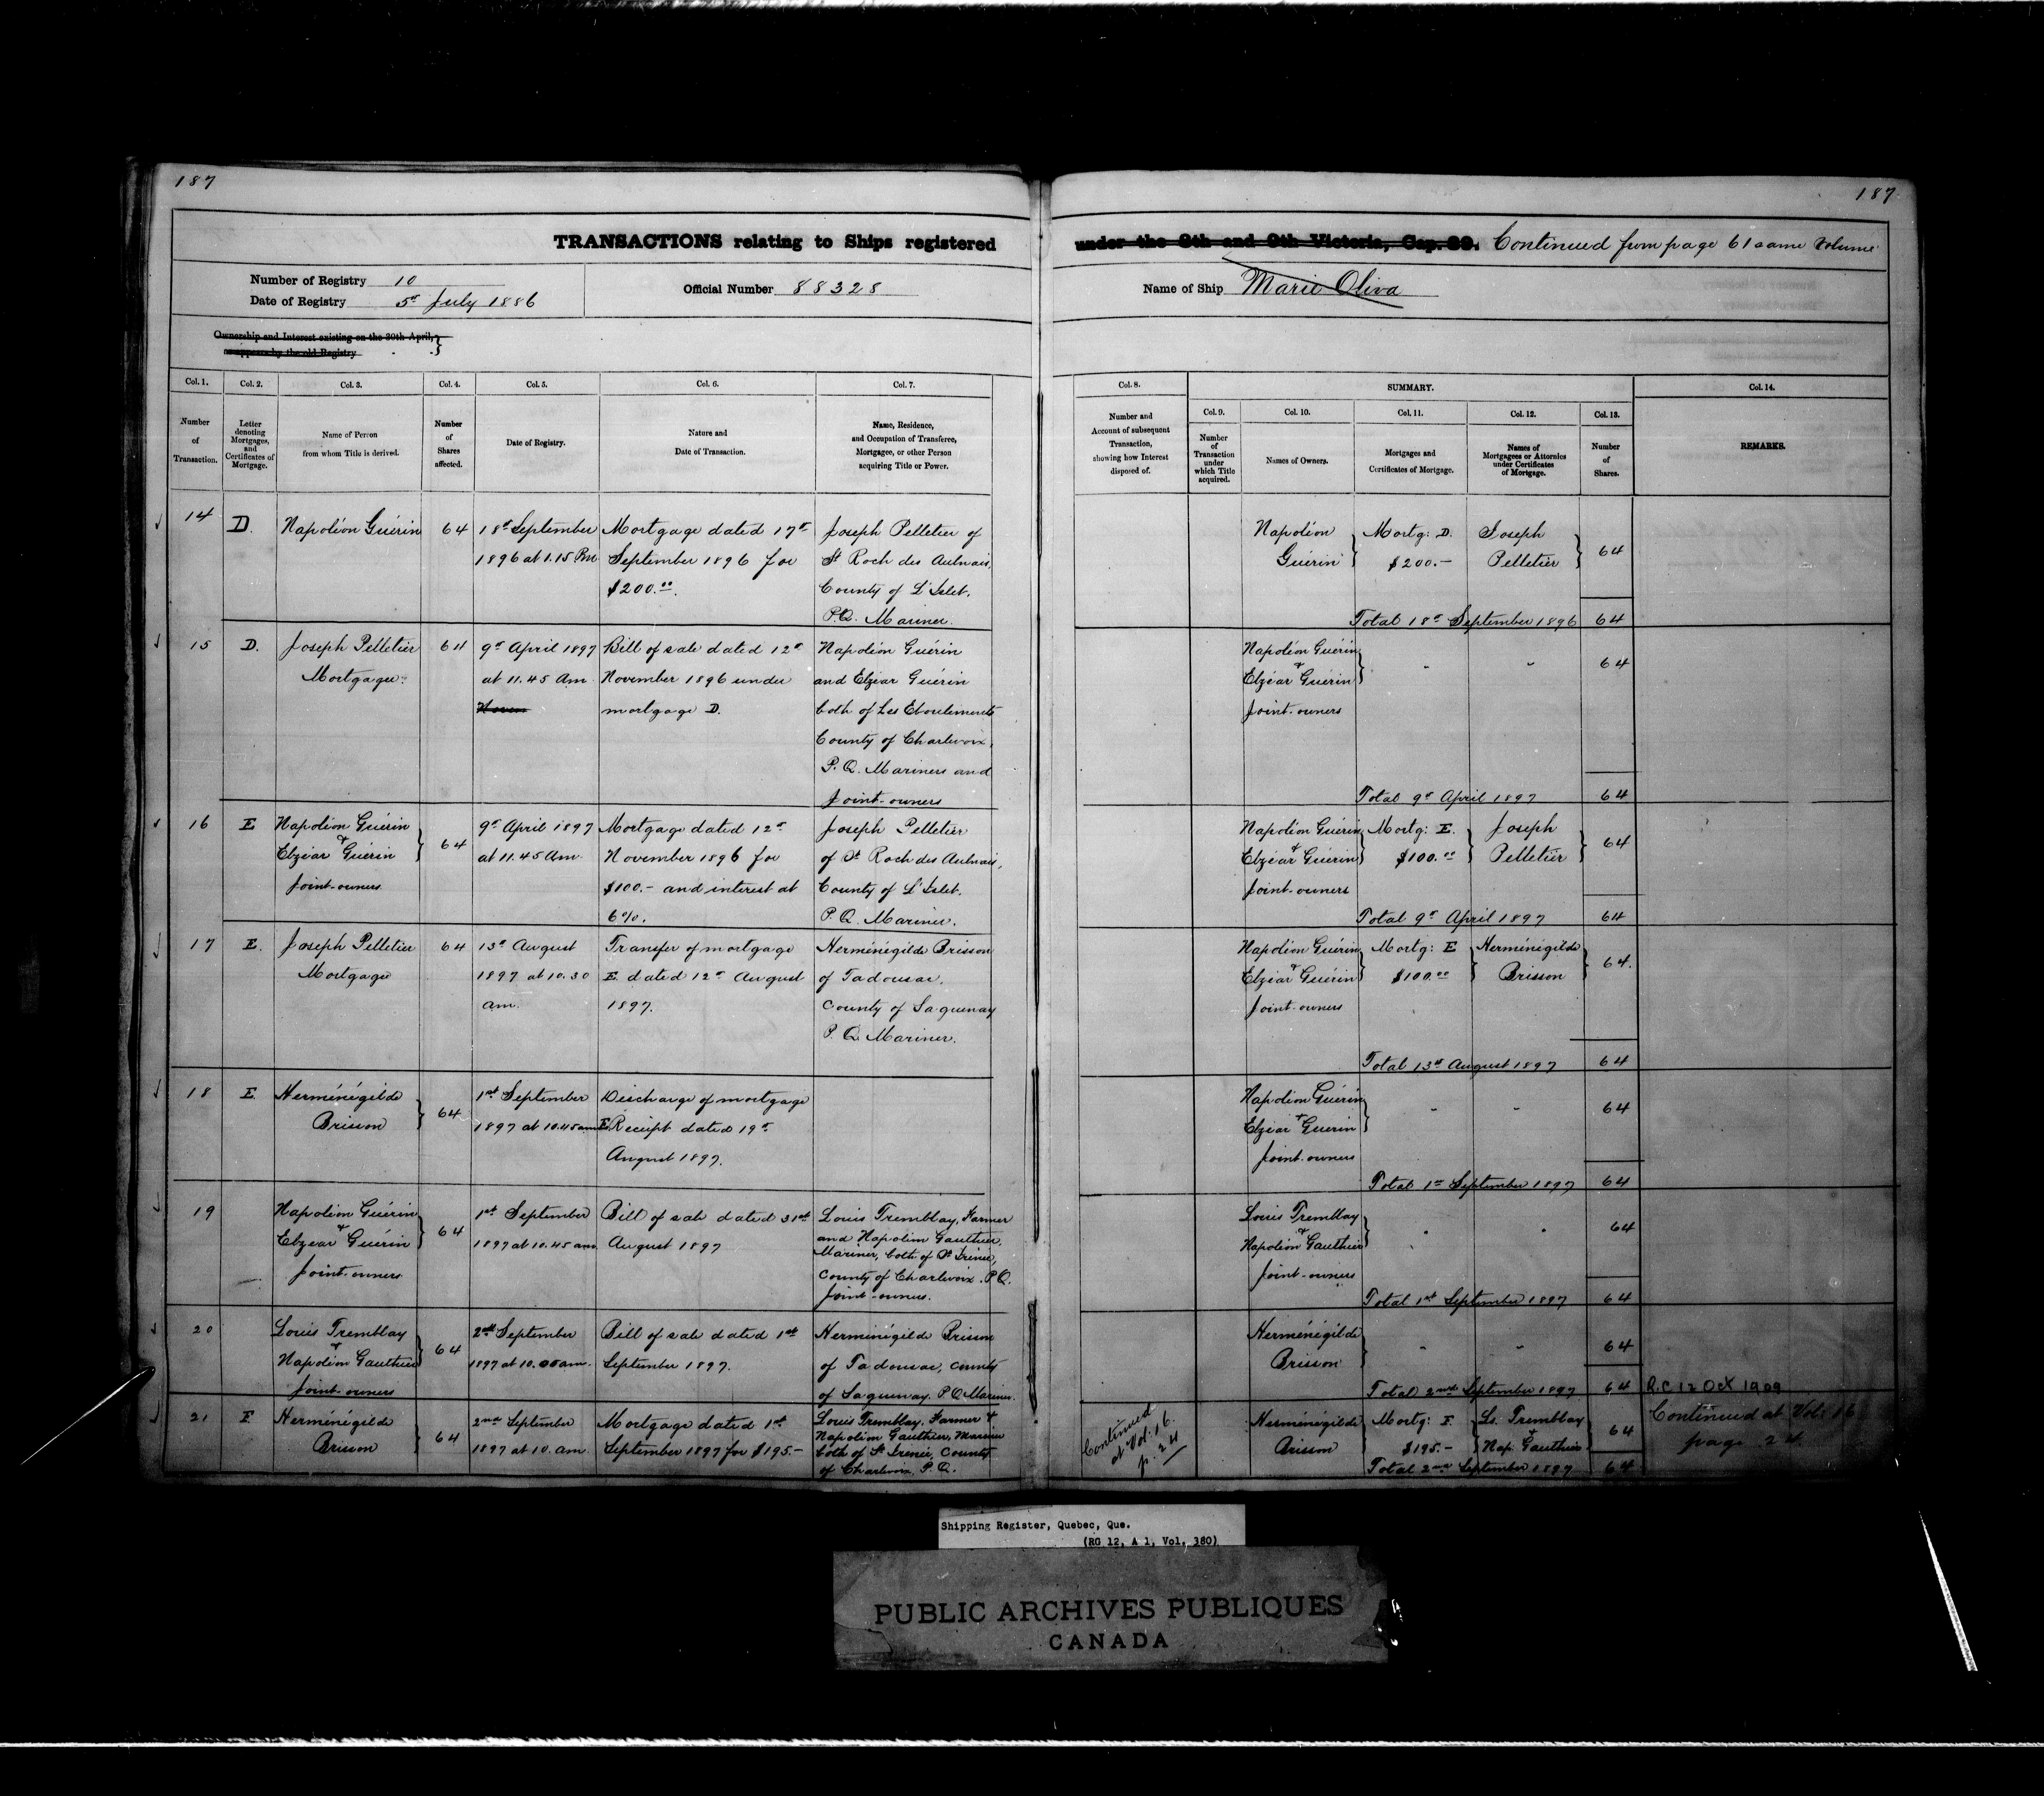 187
187
TRANSACTIONS relating to Ships registered under the 8th and 9th Victoria, Cap. 89. Continued from page 61 same volume
Number of Registry 10
Date of Registry 5th July 1886
Official Number 88328
Name of Ship Marie Oliva
Ownership and Interest existing on the 30th April,
as appears by the old Registry
Col. 1.
Number
of
Transaction.
Col. 2.
Letter
denoting
Mortgages,
and
Certificates of
Mortgage.
Col. 3.
Name of Person
from whom Title is derived.
Col. 4.
Number
of
Shares
affected.
Col. 5.
Date of Registry.
Col. 6.
Nature and
Date of Transaction.
Col. 7.
Name, Residence,
and Occupation of Transferee,
Mortgagee, or other Person
acquiring Title or Power.
Col. 8.
Number and
Account of subsequent
Transaction,
showing how Interest
disposed of.
SUMMARY.
Col. 9.
Number
of
Transaction
under
which Title
acquired.
Col. 10.
Names of Owners.
Col. 11.
Mortgages and
Certificates of Mortgage.
Col. 12.
Names of
Mortgagees or Attornies
under Certificates
of Mortgage.
Col. 13.
Number
of
Shares.
Col. 14.
REMARKS.
14
D.
Napoléon Guérin
64
18th September
1896 at 1.15 Pm
Mortgage dated 17th
September 1896 for
$200.00.
Joseph Pelletier of
St Roch des Aulnais,
County of L'Islet,
P.Q. Mariner.
Napoléon
Guérin
Mortg: D.
$200.-
Joseph
Pelletier
64
Total 18th September 1896 64
15
D.
Joseph Pelletier
Mortgagee.
64
9th April 1897
at 11.45 Am
Novem
Bill of sale dated 12th
November 1896 under
mortgage D.
Napoléon Guérin
and Elzéar Guérin
both of Les Eboulements
County of Charlevoix,
P.Q. Mariners and
Joint-owners
Napoléon Guérin
&
Elzéar Guérin
Joint-owners
" "
64
Total 9th April 1897 64
16
E
Napoléon Guérin
&
Elzéar Guérin
Joint-owners
64
9th April 1897
at 11.45 Am
Mortgage dated 12th
November 1896 for
$100.- and interest at
6%.
Joseph Pelletier
of St Roch des Aulnais,
County of L'Islet.
P.Q. Mariner.
Napoléon Guérin
&
Elzéar Guérin
Joint-owners
Mortg: E.
$100.00
Joseph
Pelletier
64
Total 9th April 1897 64
17
E.
Joseph Pelletier
Mortgagee
64
13th August
1897 at 10.30
am.
Transfer of mortgage
E. dated 12th August
1897.
Herménégilde Brisson
of Tadousac,
County of Saguenay
P.Q. Mariner.
Napoléon Guérin
&
Elzéar Guérin
Joint-owners
Mortg: E
$100.00
Herménégilde
Brisson
64.
Total 13th August 1897 64
18
E
Herménégilde
Brisson
64
1st September
1897 at 10.45 am
Discharge of mortgage
E. Receipt dated 19th
August 1897.
Napoléon Guérin
&
Elzéar Guérin
Joint-owners
" "
64
Total 1st September 1897 64
19
Napoléon Guérin
&
Elzéar Guérin
Joint-owners
64
1st September
1897 at 10.45 am
Bill of sale dated 31st
August 1897
Louis Tremblay, Farmer
and Napoléon Gauthier,
Mariner, both of St Irénée,
County of Charlevoix. P.Q.
Joint-owners.
Louis Tremblay
&
Napoléon Gauthier
Joint-owners
" "
64
Total 1st September 1897 64
20
Louis Tremblay
&
Napoléon Gauthier
Joint-owners
64
2nd September
1897 at 10.00 am.
Bill of sale dated 1st
September 1897.
Herménégilde Brisson
of Tadousac, County
of Saguenay. P.Q. Mariner.
Herménégilde
Brisson
" "
64
Total 2nd September 1897 64
21
F
Herménégilde
Brisson
64
2nd September
1897 at 10. am
Mortgage dated 1st
September 1897 for $195.-
Louis Tremblay, Farmer &
Napoléon Gauthier, Mariner
both of St Irénée, County
of Charlevoix. P.Q.
Continued
at Vol. 16.
p. 24
Herménégilde
Brisson
Mortg: F.
$195.-
Ls. Tremblay
&
Nap. Gauthier
64
Total 2nd September 1897 64
R.C. 12 Oct 1909
Continued at Vol: 16
page 24
Shipping Register, Quebec, Que.
(RG 12, A 1, Vol. 380)
PUBLIC ARCHIVES PUBLIQUES
CANADA